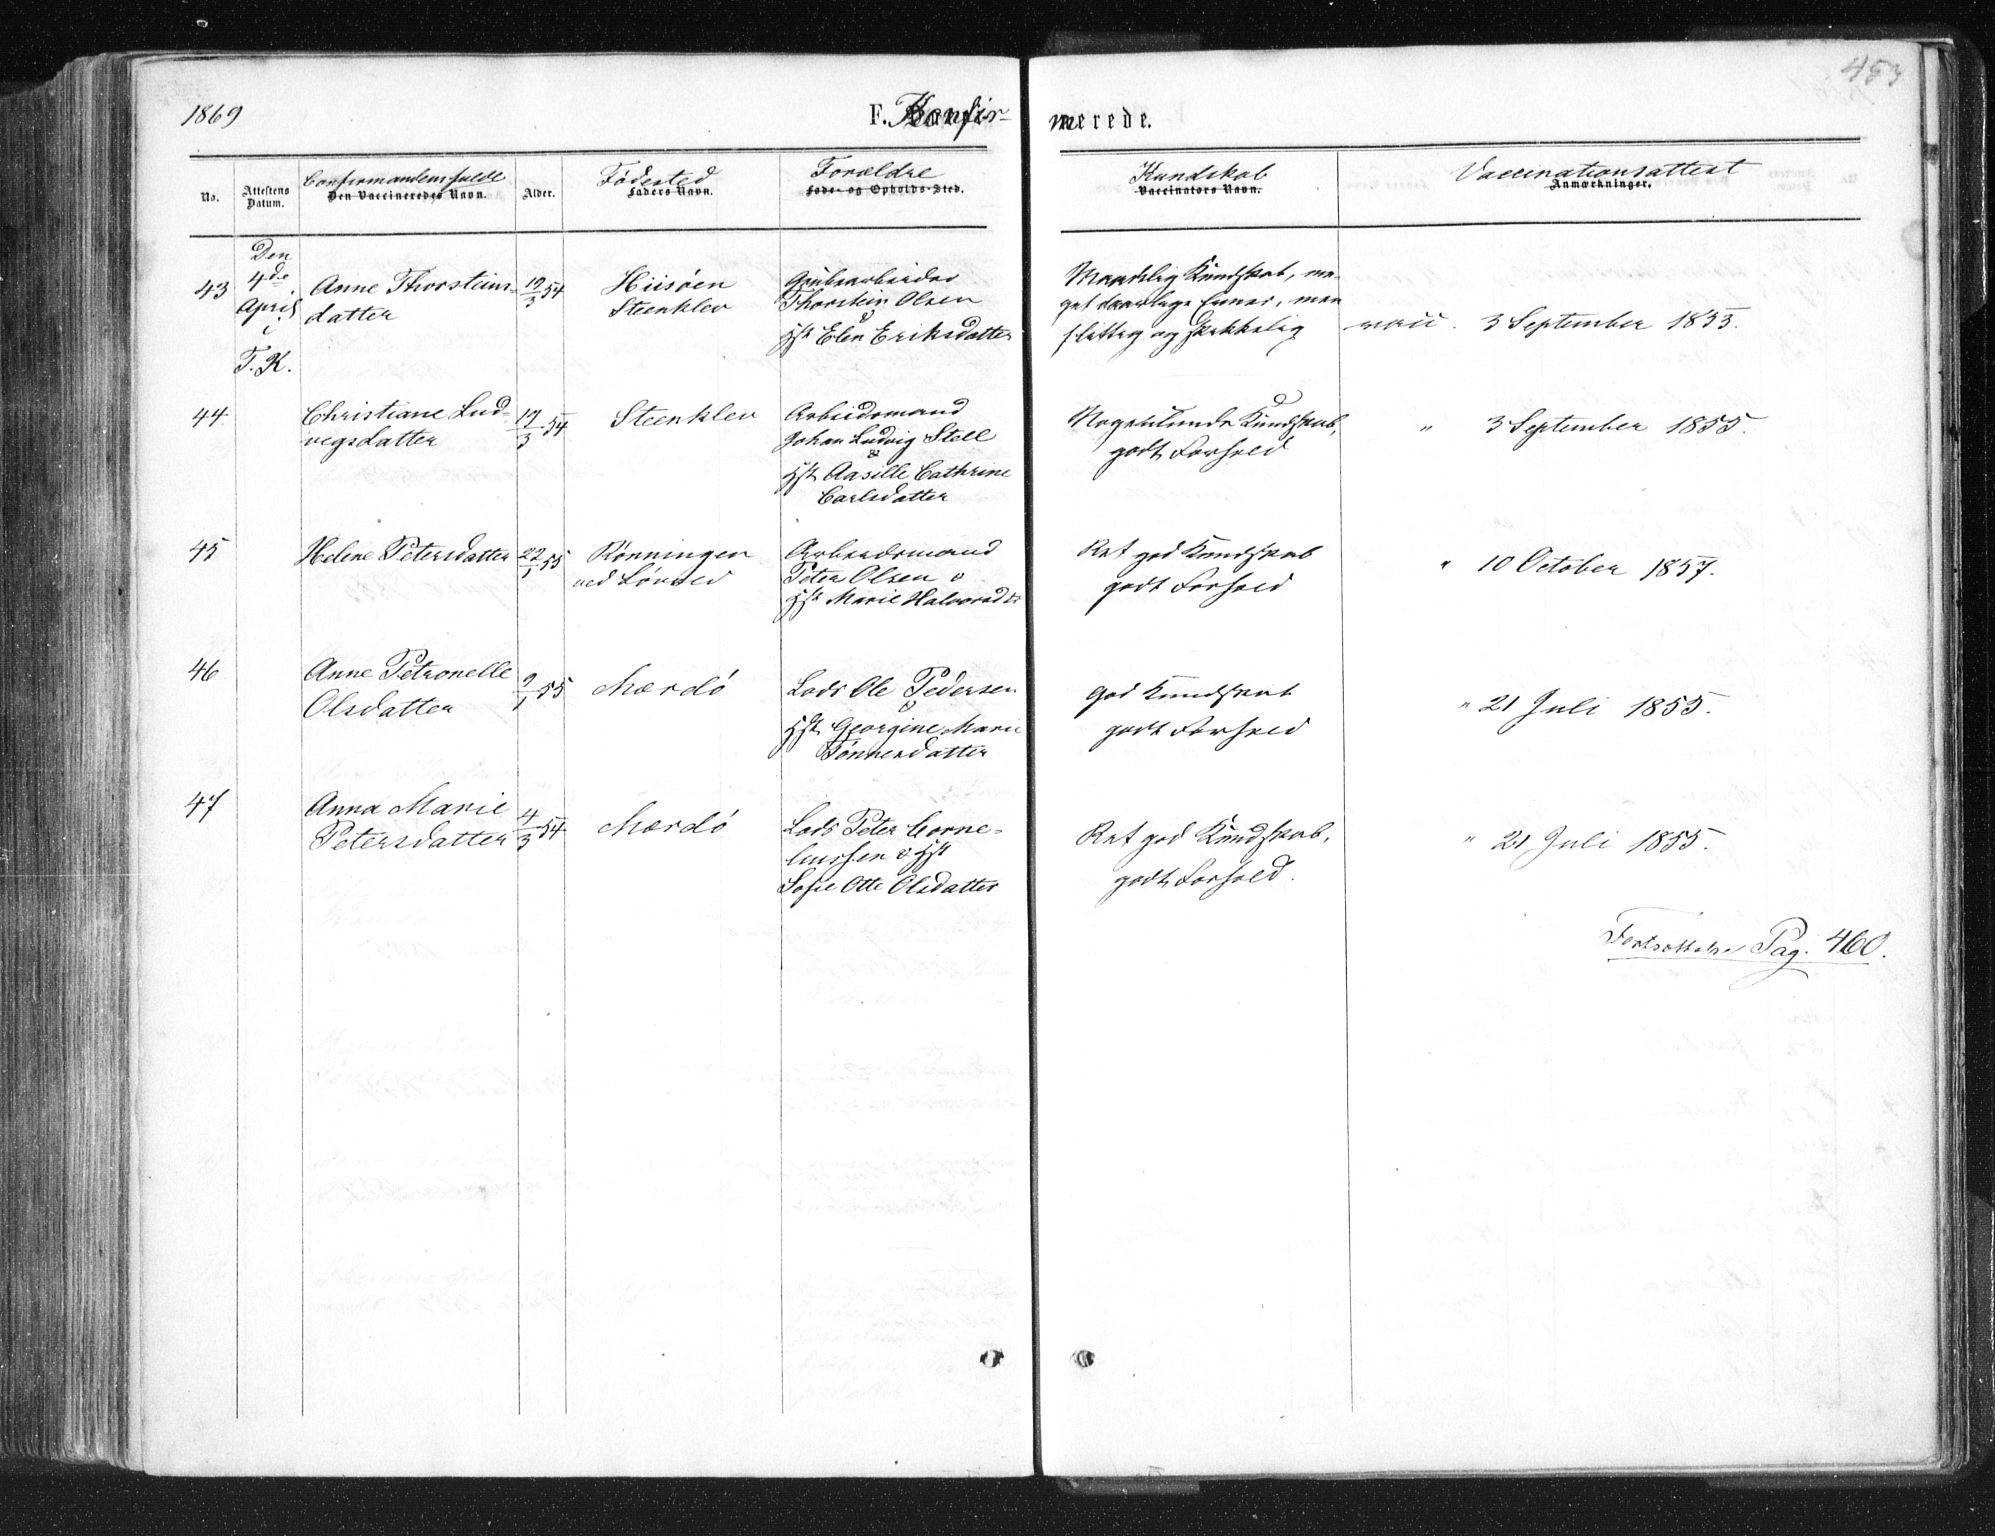 1869
F. Konfir-
merede.
453
No.
Attestens Datum.
Confirmandens fulde
Den Vaccineredes Navn.
Alder.
Fødested
Faders Navn.
Forældre
Føde- og Opholds-Sted.
Kundskab
Vaccinators Navn.
Vaccinationsattest
Anmærkninger.
Den
4de
April
i
T. K.
43
Anne Thorsteins-
datter
19/3 54
Hiisøen
Steenklev
Grubearbeider
Thorstein Olsen
o
Hst Elen Eriksdatter
Maadelig Kundskab, me-
get daarlige Evner, men
flittig og skikkelig
vacc. 3 September 1855.
44
Christiane Lud-
vigsdatter
19/3 54
Steenklev
Arbeidsmand
Johan Ludvig Stell
&
Hst Aasille Cathrine
Carlsdatter
Nogenlunde Kundskab,
godt Forhold
" 3 September 1855.
45
Helene Petersdatter
22/1 55
Rønningen
ved Løvold
Arbeidsmand
Peter Olsen o
Hst Marie Halvorsdtr
Ret god Kundskab
godt Forhold
" 10 October 1857.
46
Anne Petronelle
Olsdatter
9/1 55
Mærdø
Lods Ole Pedersen
o
Hst Georgine Marie
Tønnesdatter
God Kundskab
godt Forhold
" 21 Juli 1855.
47
Anna Marie
Petersdatter
4/3 54
Mærdø
Lods Peter Corne-
liussen o Hst
Sofie Otte Olsdatter
Ret god Kundskab,
godt Forhold.
" 21 Juli 1855.
Fortsættelse Pag. 460.